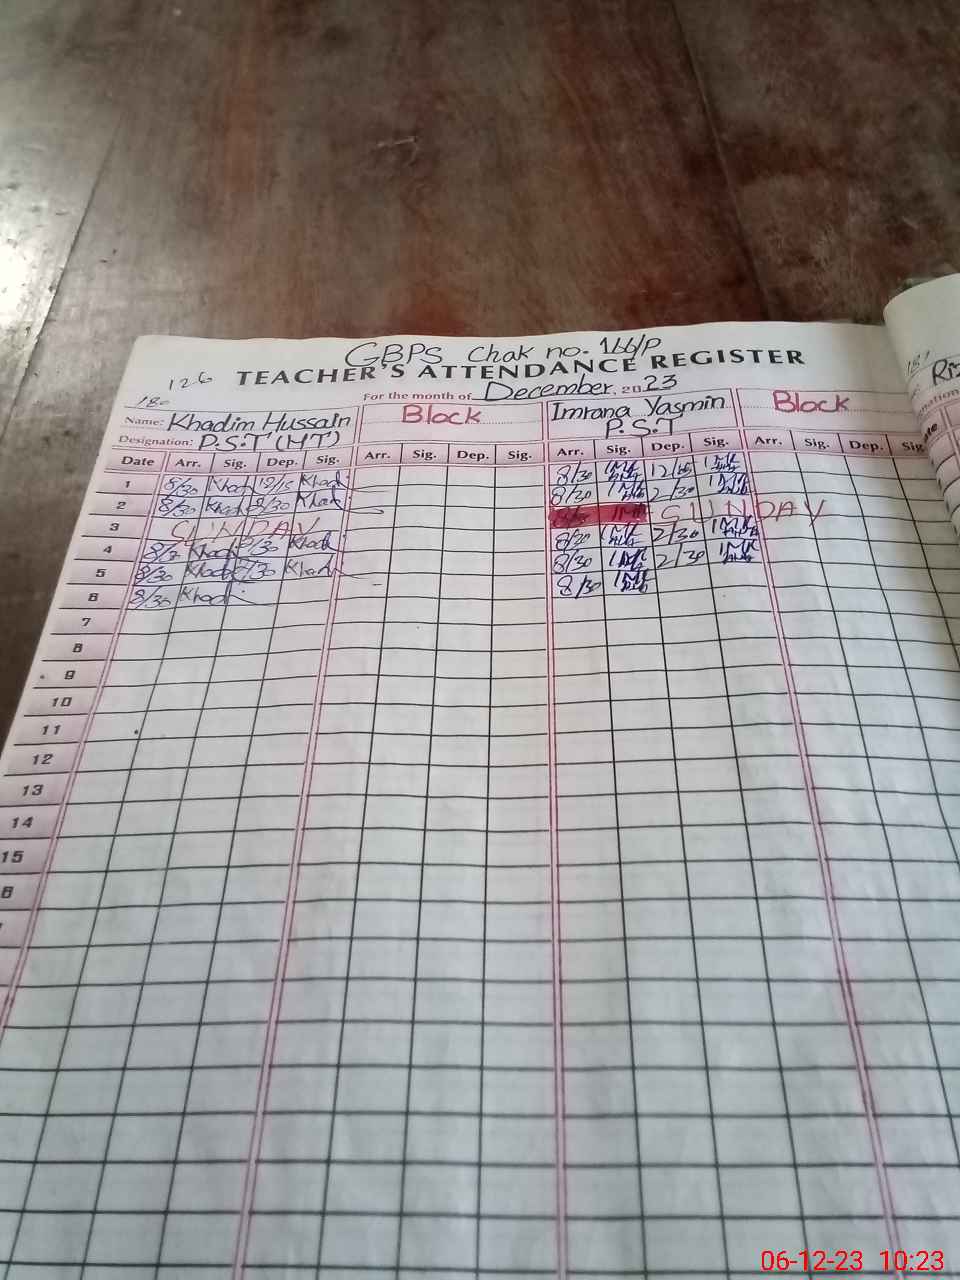 GBPS Chak no. 166/P
TEACHER'S ATTENDANCE REGISTER
126
For the month of December. 2023
180
Name: Khadim Hussain Block Imrana Yasmin Block
Designation: P.S.T (HT) P.S.T
Date Arr. Sig. Dep. Sig. Arr. Sig. Dep. Sig. Arr. Sig. Dep. Sig. Arr. Sig. Dep.
1 8/30 Khadi 12/15 Khadi 8/30 12/15
2 8/30 Khadi Khadi 8/30 2/30
3 SUNDAY SUNDAY
4 Khadi Khadi 8/30 2/30
5 8/30 Khadi Khadi 8/30 2/30
6 8/30 Khadi 8/30
7
8
9
10
11
12
13
14
15
06-12-23 10:23